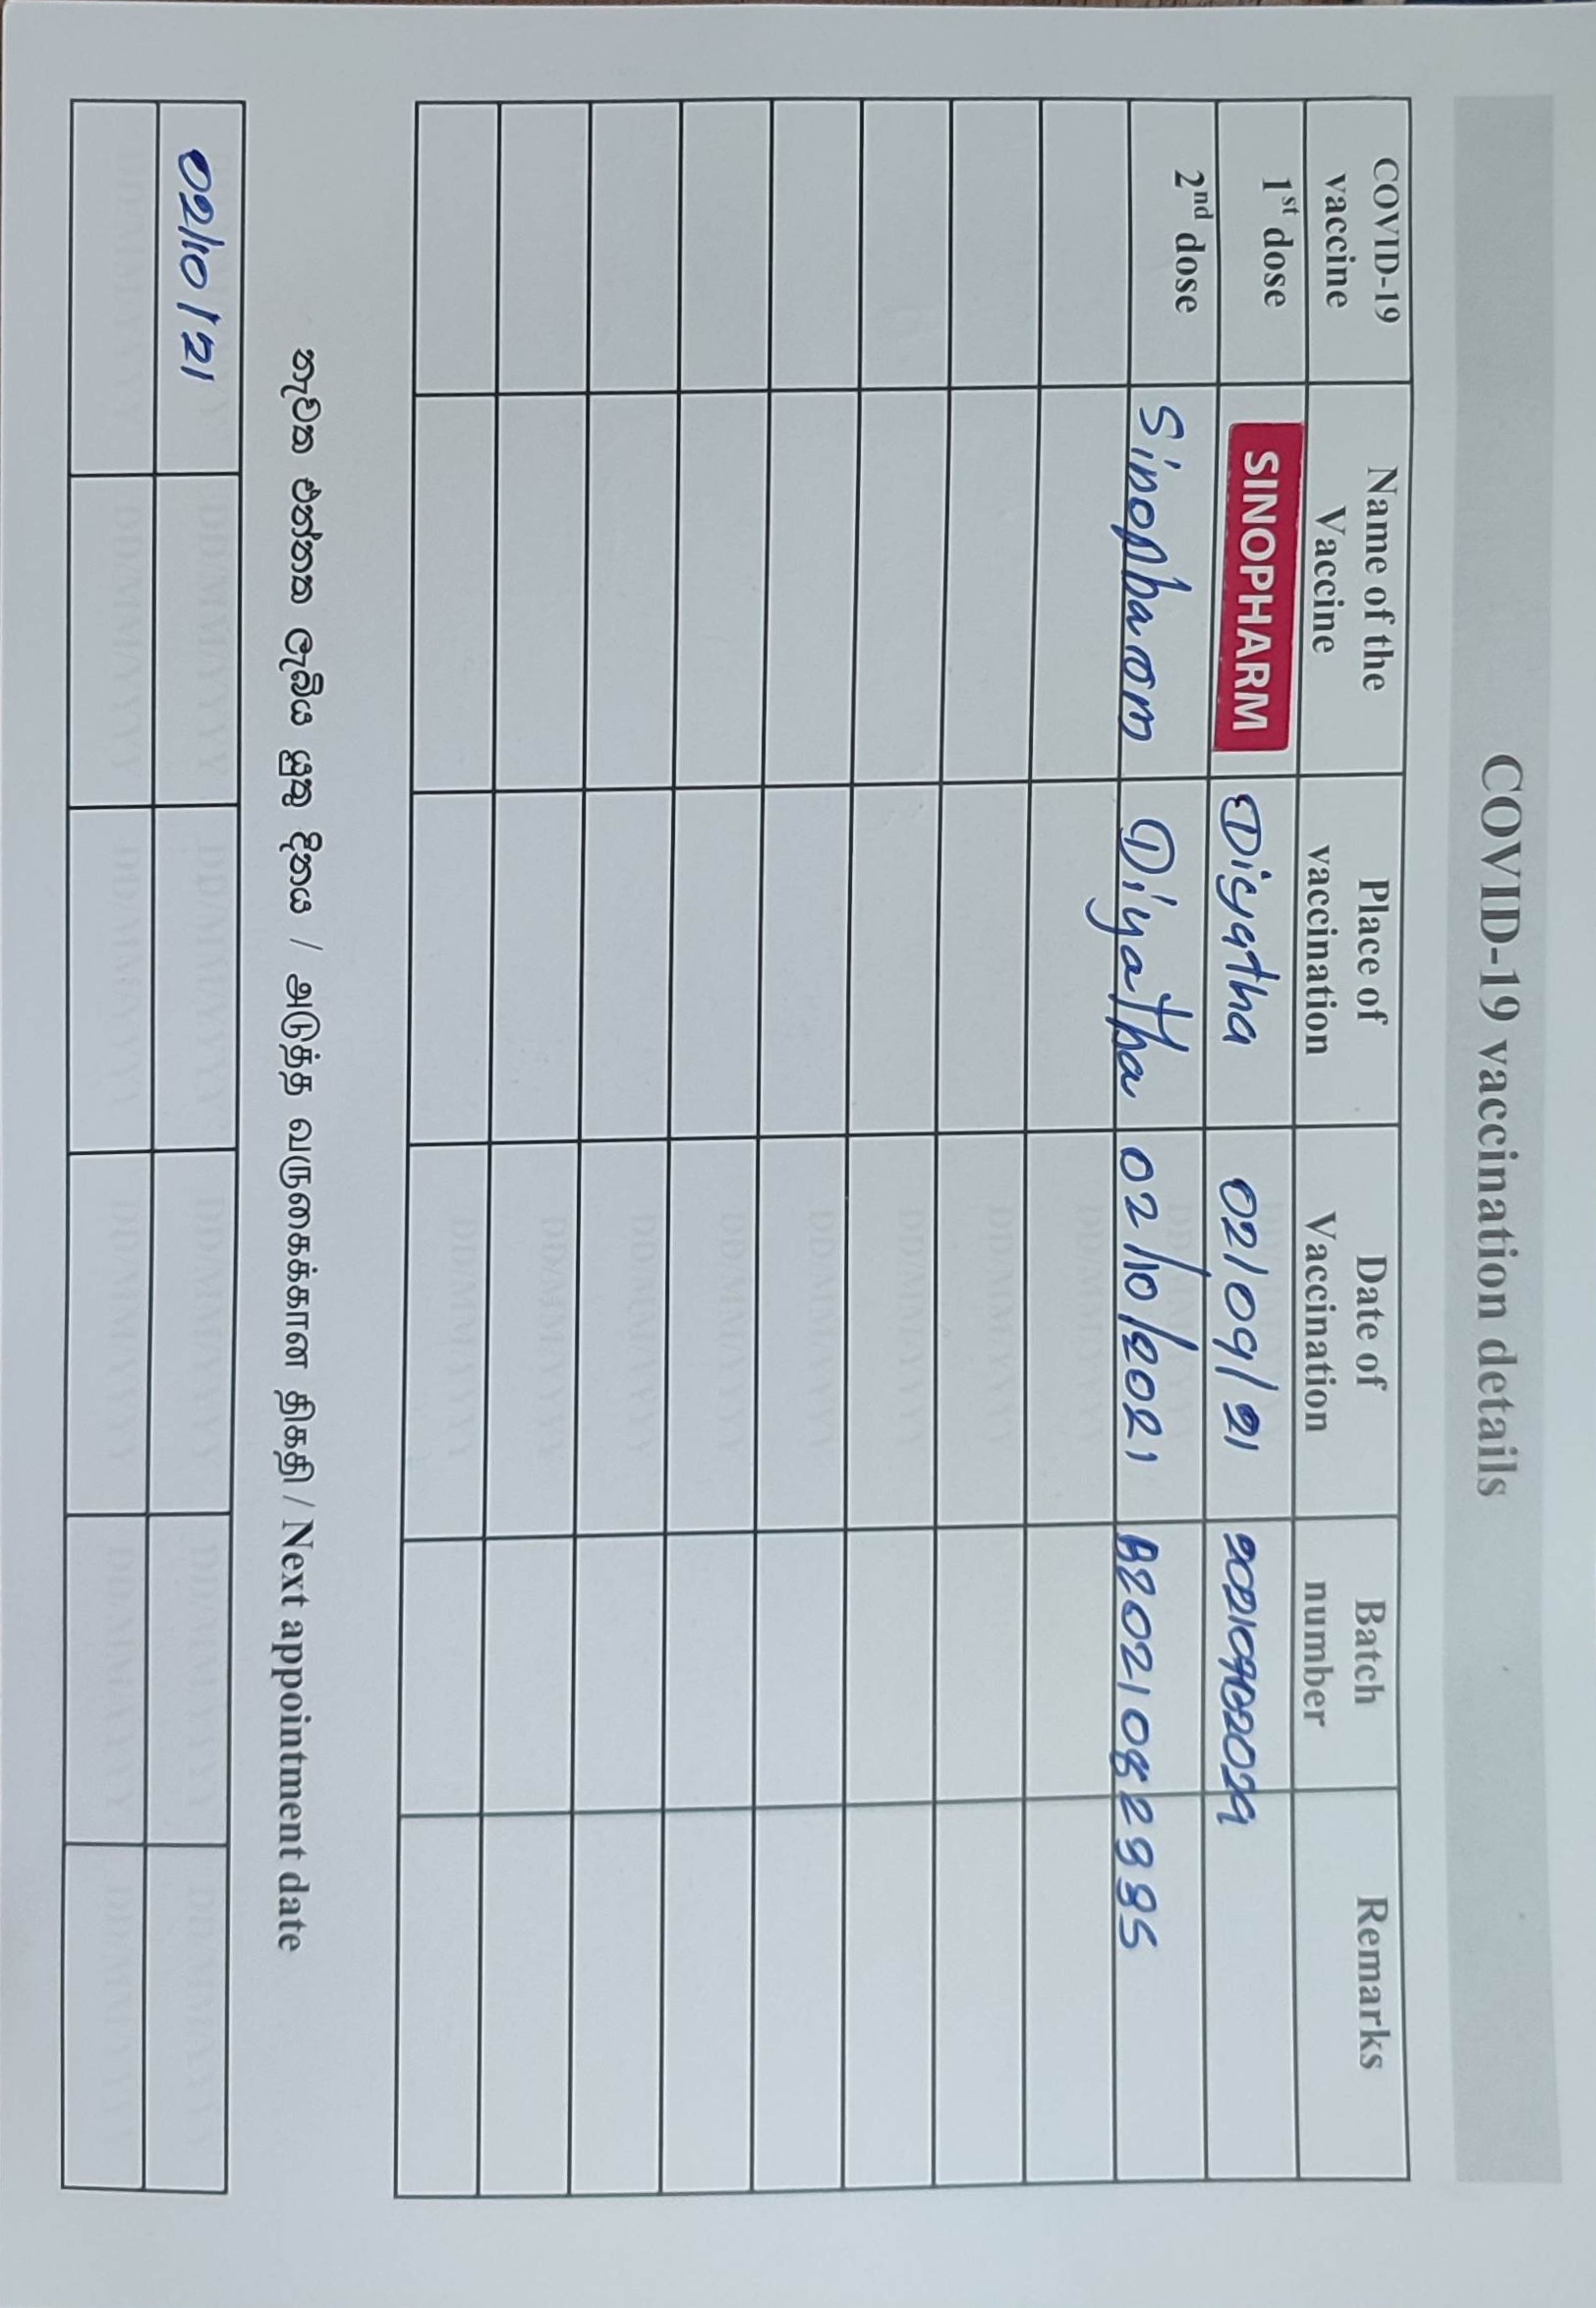 COVID-19 vaccination details
COVID-19 vaccine Name of the Vaccine Place of vaccination Date of Vaccination Batch number Remarks
1st dose SINOPHARM Diyatha 02/09/21
2nd dose Sinopharm Diyatha 02/10/2021
DD/MM/YYYY
DD/MM/YYYY
DD/MM/YYYY
DD/MM/YYYY
DD/MM/YYYY
DD/MM/YYYY
DD/MM/YYYY
DD/MM/YYYY
නැවත එන්නත ලැබිය යුතු දිනය / அடுத்த வருகைக்கான திகதி / Next appointment date
02/10/21 DD/MM/YYYY DD/MM/YYYY DD/MM/YYYY DD/MM/YYYY DD/MM/YYYY
DD/MM/YYYY DD/MM/YYYY DD/MM/YYYY DD/MM/YYYY DD/MM/YYYY DD/MM/YYYY